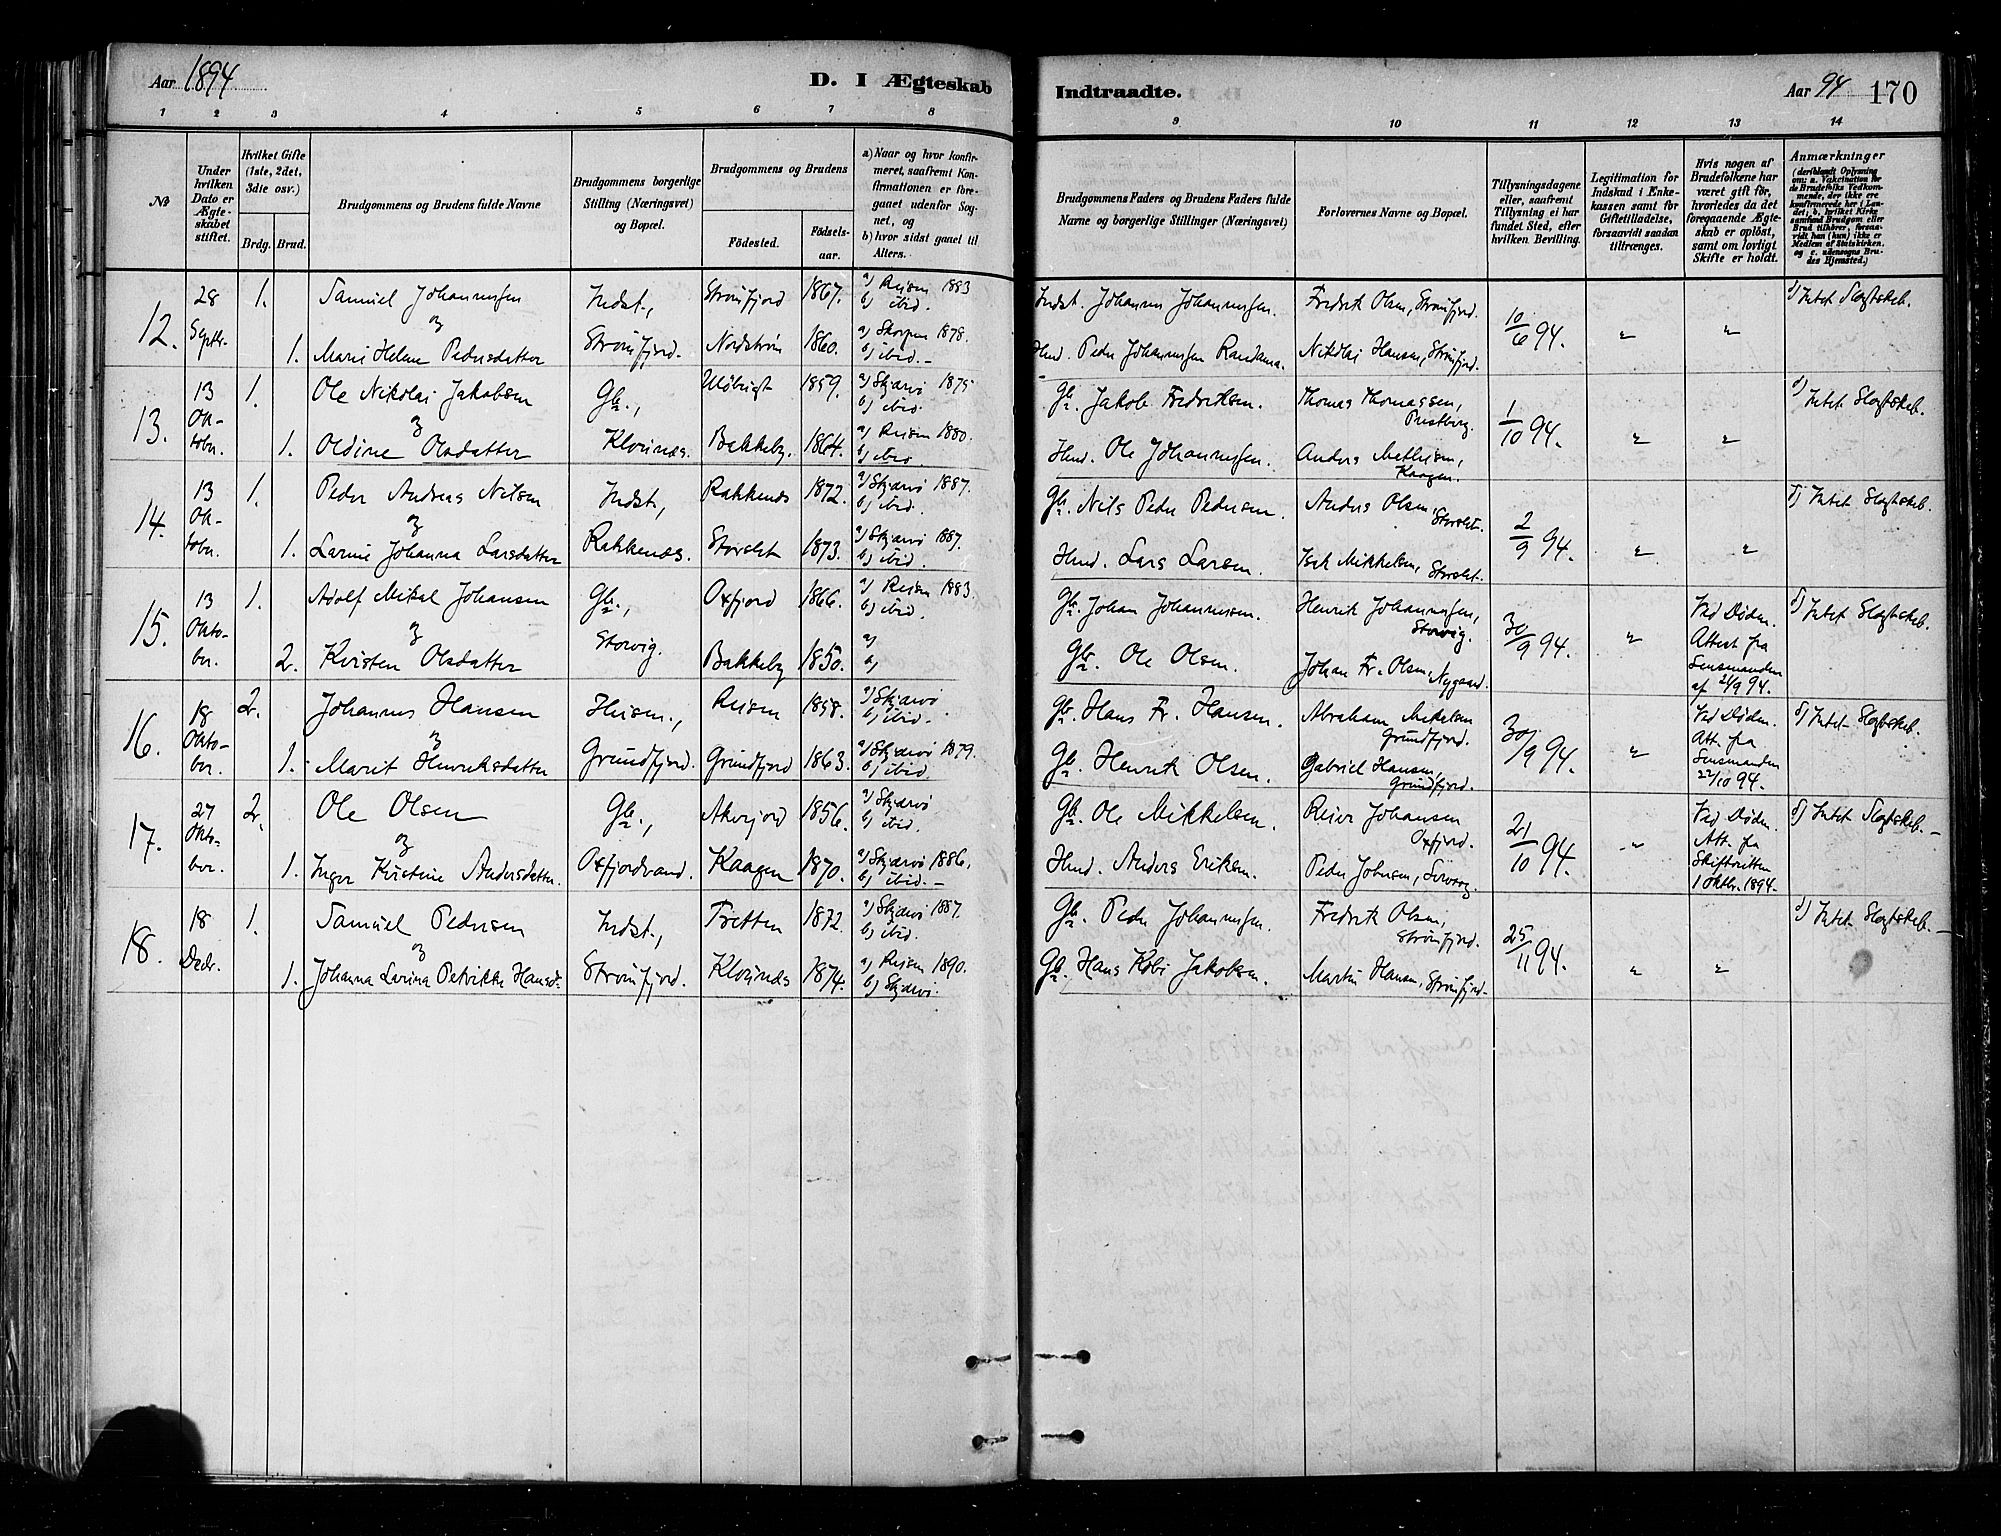 Aar 1894
D. I Ægteskab
Indtraadte.
Aar 94 170
1 2 3 4 5 6 7 8
9 10 11 12 13 14
No
Under hvilken Dato er Ægteskabet stiftet.
Hvilket Gifte (1ste, 2det, 3die osv.)
Brdg. Brud.
Brudgommens og Brudens fulde Navne
Brudgommens borgerlige Stilling (Næringsvei) og Bopæl.
Brudgommens og Brudens
Fødested.
Fødsels-aar.
a) Naar og hvor konfirmeret, saafremt Konfirmationen er foregaaet udenfor Sognet, og
b) hvor sidst gaaet til Alters.
Brudgommens Faders og Brudens Faders fulde Navne og borgerlige Stillinger (Næringsvei)
Forlovernes Navne og Bopæl.
Tillysningsdagene eller, saafremt Tillysning ei har fundet Sted, efter hvilken Bevilling.
Legitimation for Indskud i Enkekassen samt for Giftetilladelse, forsaavidt saadan tiltrænges.
Hvis nogen af Brudefolkene har været gift før, hvorledes da det foregaaende Ægteskab er opløst, samt om lovligt Skifte er holdt.
Anmærkninger
12. 28 Septbr. 1. Samuel Johannesen Indst., Strømfjord 1867. a) Reisen 1883 b) ibid. Indst. Johannes Johannesen. Fredrik Olsen, Strømfjord. 10/6 94. " " d) Intet Slegtskab.
og
1. Marie Helene Pedersdatter Strømfjord. 1860. a) Skorpen 1878. b) ibid. Peder Johannesen Nikolai Hansen, Strømfjord.
13. 13 Oktober. 1. Ole Nikolai Jakobsen Gbr., 1859. a) Skjærvø 1875 b) ibid. Gbr. Jakob Fredriksen. Thomas Thomassen, 1/10 94. " " d) Intet Slegtskab.
og
1. Oldine Olsdatter Klovnæs. Bakkeby. 1864. a) Reisen 1880. b) ibid. Ole Johannesen. Anders Mathisen, Kaagen.
14. 13 Oktober. 1. Peder Andreas Nilsen Indst., Rakkenæs 1872. a) Skjærvø 1887. b) ibid. Gbr. Nils Peder Pedersen. Anders Olsen, Storslet. 2/9 94. " " d) Intet Slegtskab.
og
1. Larine Johanna Larsdatter Rakkenæs. Storslet 1873. a) Skjærvø 1887. b) ibid. Lars Larsen. Isak Mikkelsen, Storslet.
15. 13 Oktober. 1. Adolf Mikal Johansen Gbr., Oxfjord 1866. a) Reisen 1883. b) ibid. Gbr. Johan Johannesen. Henrik Johannesen, Storvig. 30/9 94. " Ved Døden. Attest fra Lensmanden af 21/9 94. d) Intet Slegtskab.
og
2. Kirsten Olsdatter Storvig. Bakkeby 1850. a) b) Gbr. Ole Olsen. Johan Fr. Olsen, Nygaard.
16. 18 Oktober. 2. Johannes Hansen Reisen 1858. a) Skjærvø b) ibid. Gbr. Hans Fr. Hansen. Abraham Mikalsen Grundfjord. 30/9 94. " Ved Døden. Att. fra Lensmanden 22/10 94. d) Intet Slegtskab.
og
1. Marit Henriksdatter Grundfjord. Grundfjord 1863. a) Skjærvø 1879. b) ibid. Gbr. Henrik Olsen. Gabriel Hansen, Grundfjord.
17. 27 Oktober. 2. Ole Olsen Gbr., 1856. a) Skjærvø b) ibid. Gbr. Ole Mikkelsen. Reier Johansen Oxfjord. 21/10 94. " Ved Døden. Att. fra Skifteretten 1 Oktbr. 1894. d) Intet Slegtskab.
og
1. Inger Kristine Andersdatter. Oxfjordvand. Kaagen 1870. a) Skjærvø 1886. b) ibid. Anders Eriksen. Peder Johnsen,
18. 18 Decbr. 1. Samuel Pedersen Indst., Fretten 1872. a) Skjærvø 1887. b) ibid. Gbr. Peder Johannesen. Fredrik Olsen, Strømfjord. 25/11 94. " " d) Intet Slegtskab.
og
1. Johanna Lorina Petrikke Hansd. Strømfjord. Klovnæs 1874. a) Reisen 1890. b) Skjærvø. Gbr. Hans Kobi Jakobsen. Martin Hansen, Strømfjord.